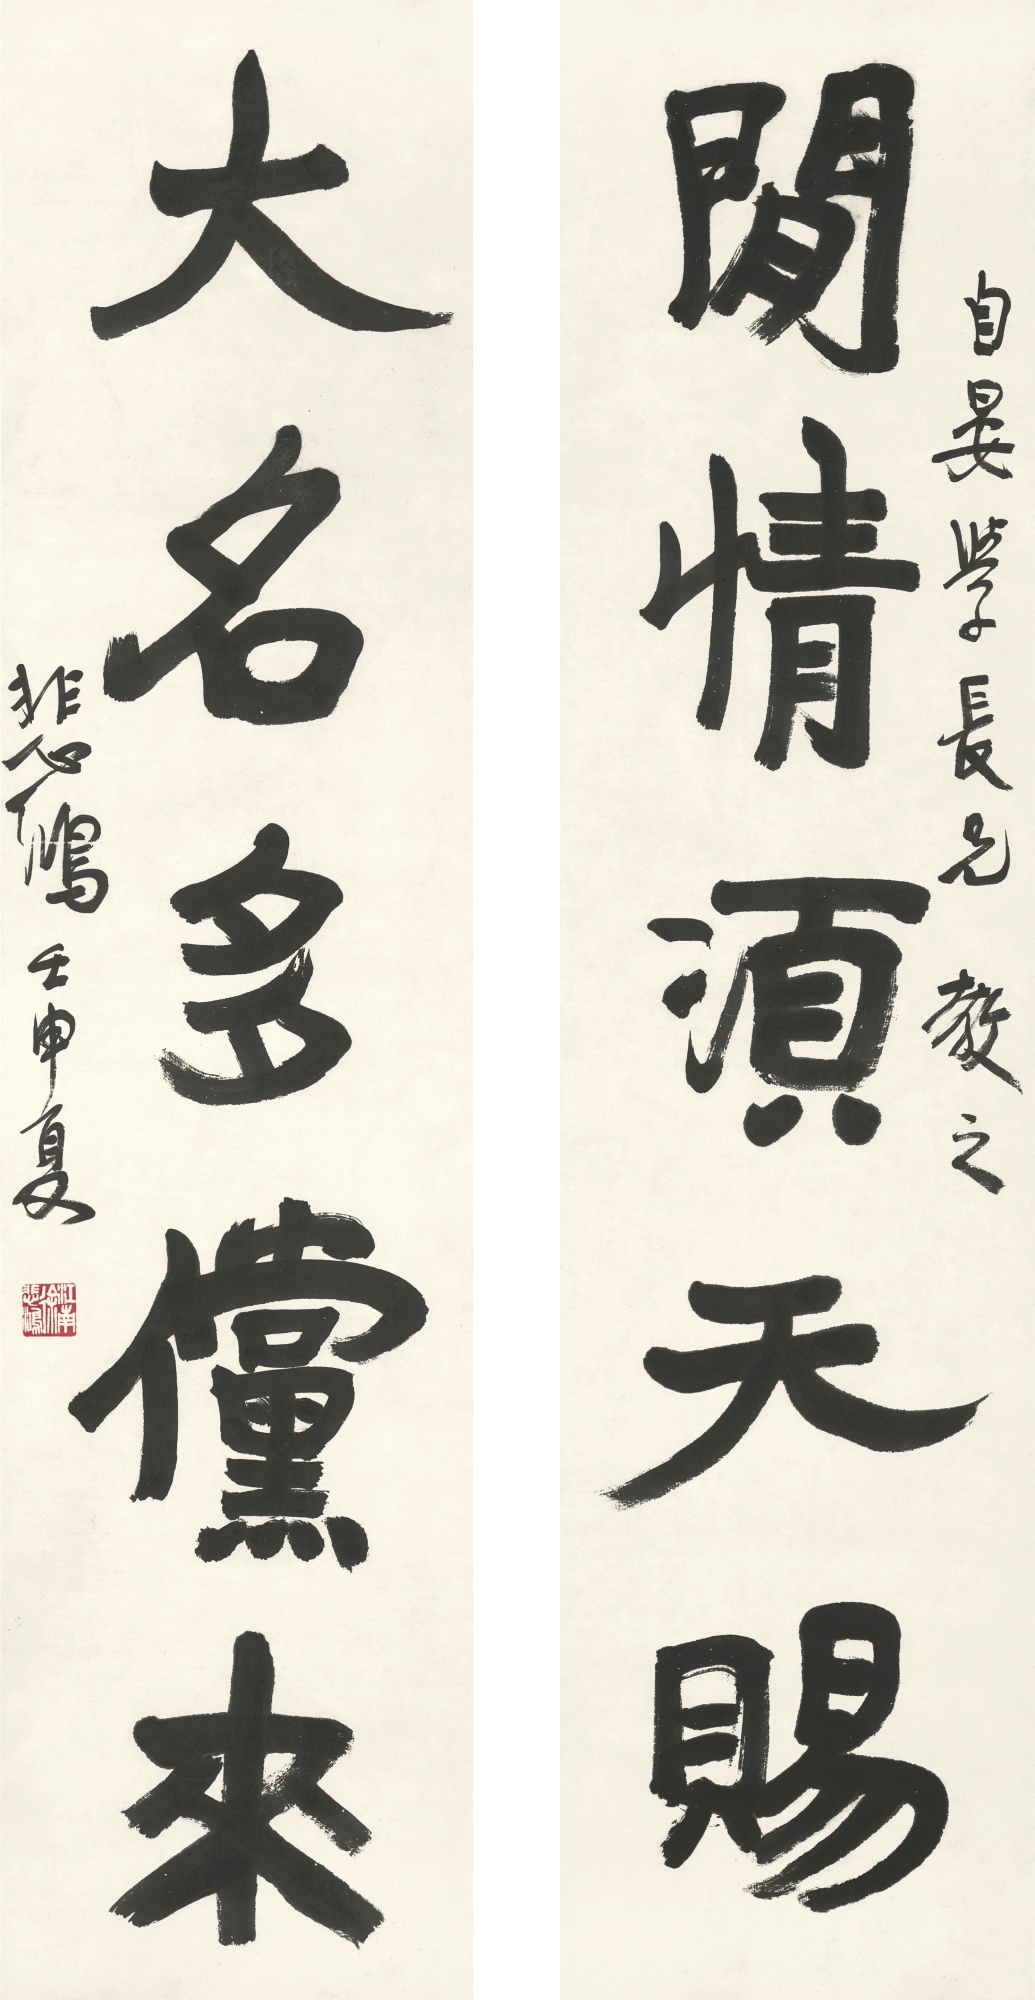 自晏學長兄 教之
閒情須天賜
大名多儻來
悲鴻 壬申夏
江南徐悲鴻